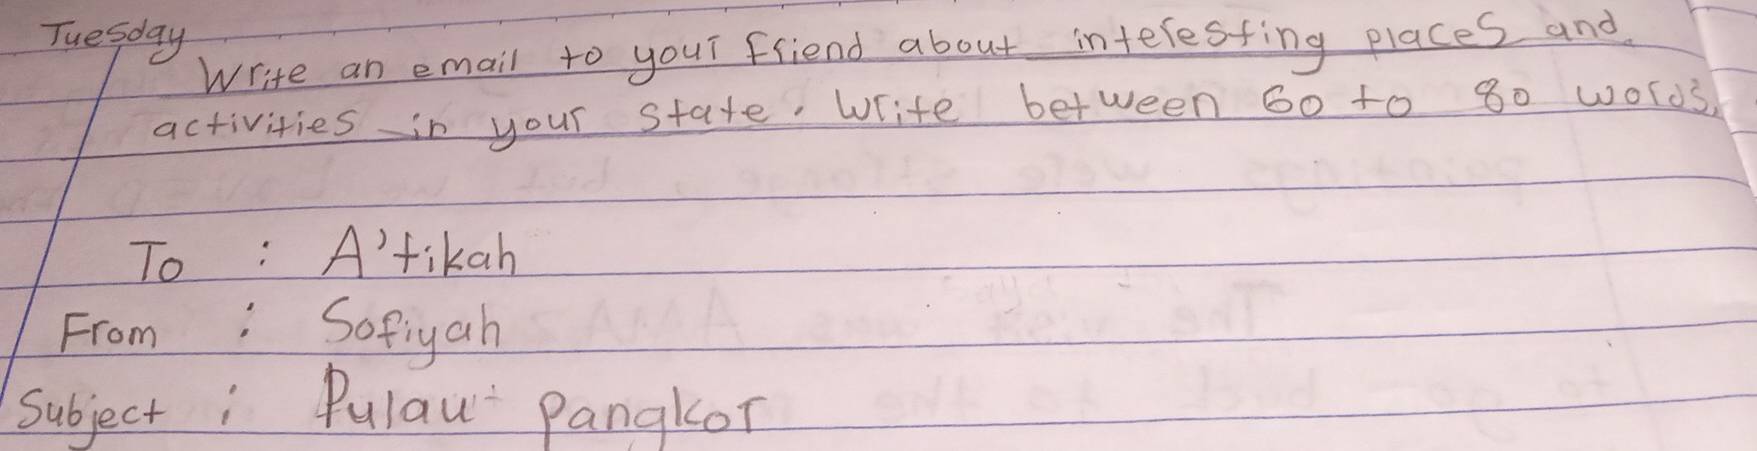 Tuesday
Write an email to your friend about interesting places and
activities in your state. Write between 60 to 80 words.
To : A'tikah
From : Sofiyah
Subject : Pulau Pangkor